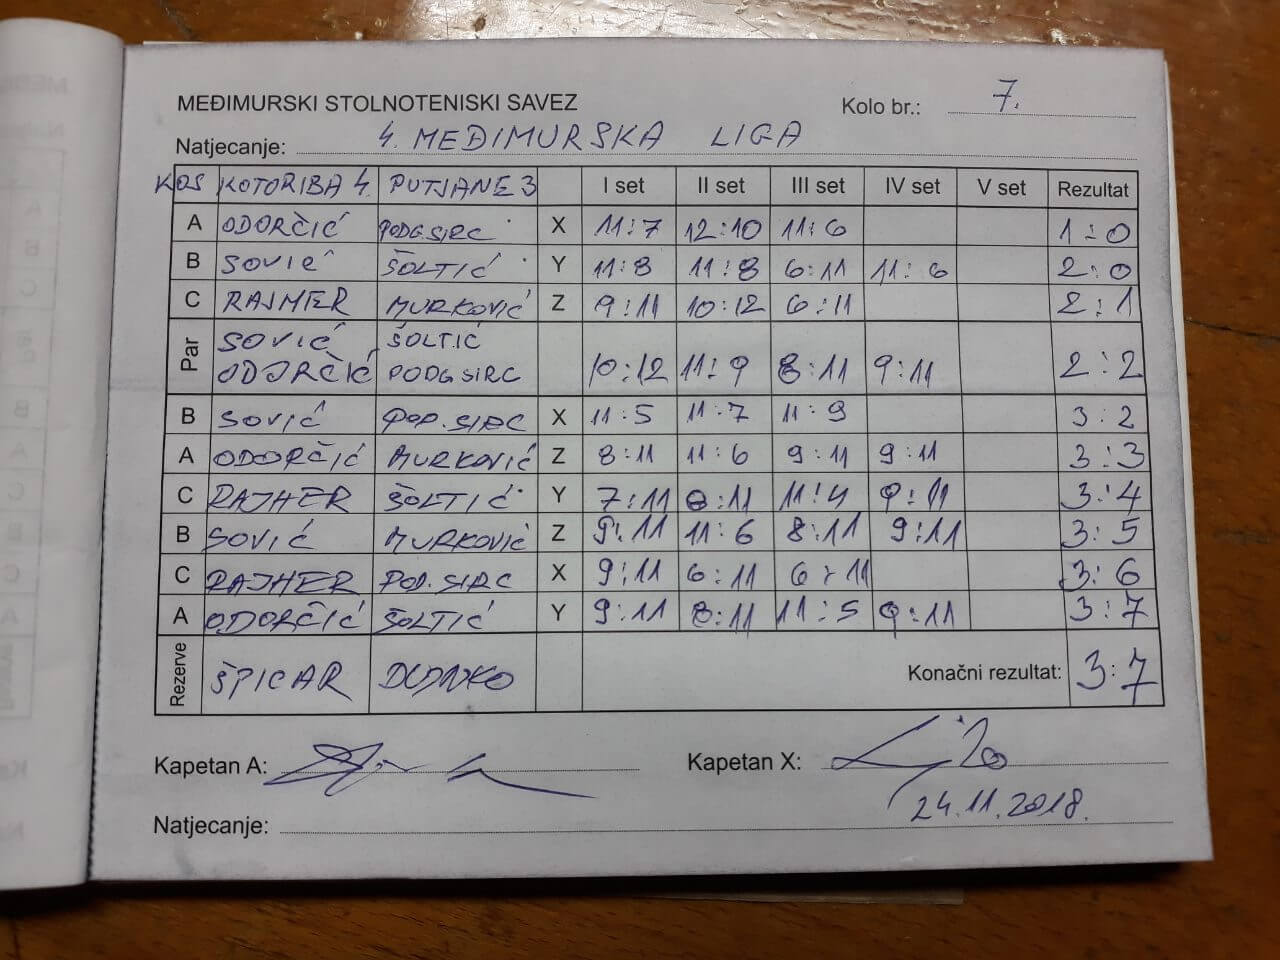 MEĐIMURSKI STOLNOTENISKI SAVEZ Kolo br.: 7.
Natjecanje: 4. MEĐIMURSKA LIGA
KOS KOTORIBA 4. PUTJANE 3 I set II set III set IV set V set Rezultat
A ODORČIĆ PODG.SIRC X 11:7 12:10 11:6 1:0
B SOVIĆ ŠOLTIĆ Y 11:8 11:8 6:11 11:6 2:0
C RAJHER MURKOVIĆ Z 9:11 10:12 6:11 2:1
Par SOVIĆ ŠOLTIĆ
ODORČIĆ PODGSIRC 10:12 11:9 8:11 9:11 2:2
B SOVIĆ POD.SIRC X 11:5 11:7 11:9 3:2
A ODORČIĆ MURKOVIĆ Z 8:11 11:6 9:11 9:11 3:3
C RAJHER ŠOLTIĆ Y 7:11 8:11 11:4 9:11 3:4
B SOVIĆ MURKOVIĆ Z 9:11 11:6 8:11 9:11 3:5
C RAJHER POD.SIRC X 9:11 6:11 6:11 3:6
A ODORČIĆ ŠOLTIĆ Y 9:11 8:11 11:5 9:11 3:7
Rezerve ŠPICAR Konačni rezultat: 3:7
Kapetan A: Kapetan X:
24.11.2018.
Natjecanje: